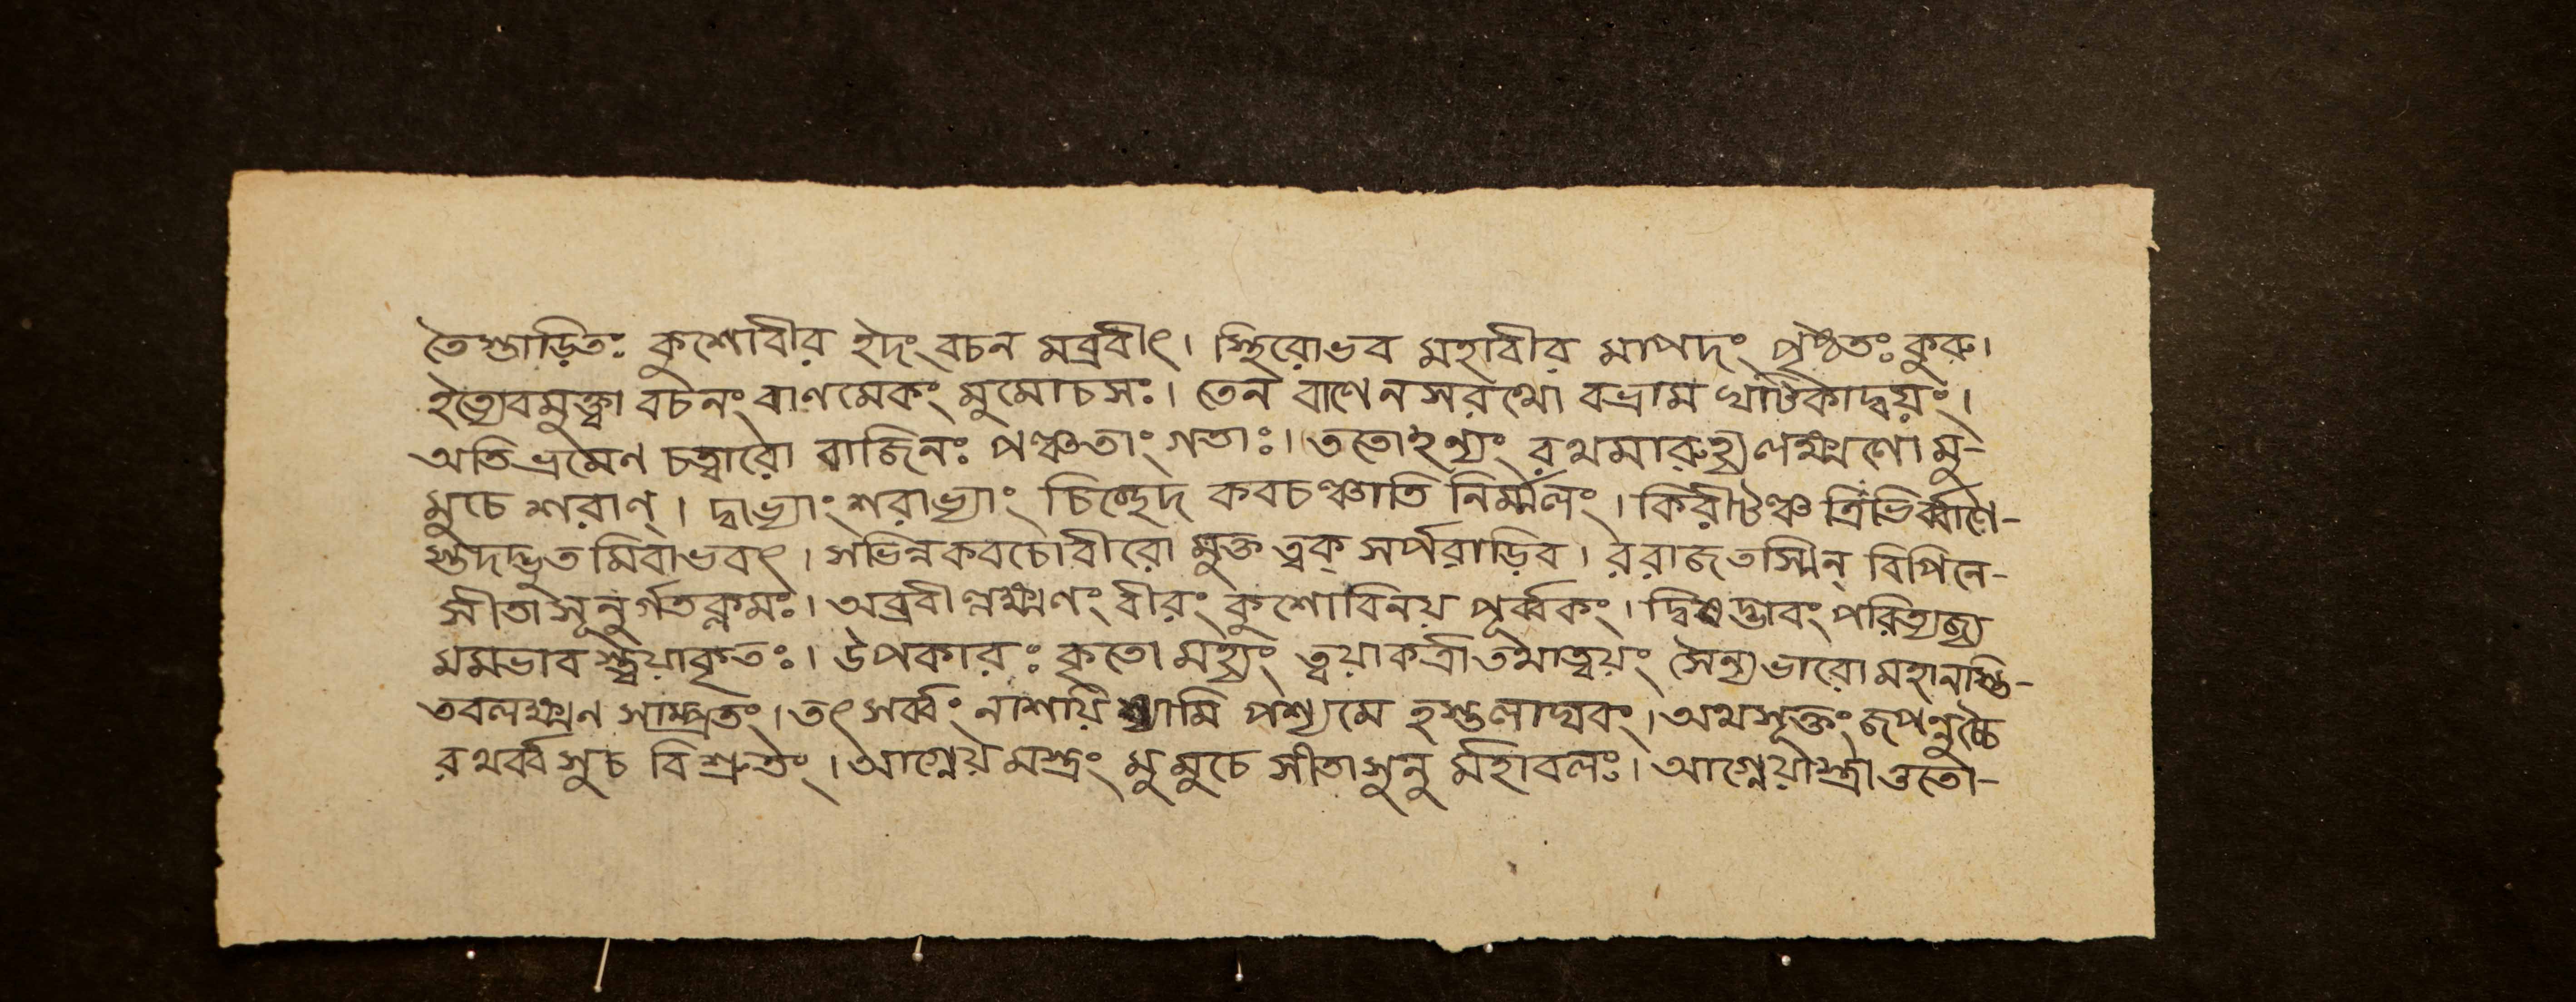 তৈস্তাড়িতঃ কুশোবীর ইদং বচন মব্রবীৎ। স্থিরোভব মহাবীর মাপদং পৃষ্ঠতঃ কুরু।
ইত্যেবমুক্ত্বা বচনং বাণমেকং মুমোচসঃ। তেন বাণেনসরথো বভ্রাম ঘটিকাদ্বয়ং।
অতিভ্রমেণ চত্বারো বাজিনঃ পঞ্চতাং গতাঃ। ততোঽন্যং রথমারুহ্য লক্ষ্মণো মু-
মুচে শরাণ্। দ্বাভ্যাং শরাভ্যাং চিচ্ছেদ কবচঞ্চাতি নির্ম্মলং। কিরীটঞ্চ ত্রিভির্ব্বাণৈ-
স্তদদ্ভুত মিবাভবৎ। সভিন্নকবচোবীরো মুক্ত ত্বক্ সর্পরাড়িব। ররাজতস্মিন্ বিপিনে-
সীতাসূনুর্গতক্লমঃ। অব্রবীল্লক্ষ্মণং বীরং কুশোবিনয় পূর্ব্বকং। দ্বিষদ্ভাবং পরিত্যজ্য
মমভাব স্ত্বয়াকৃতঃ। উপকারঃ কৃতো মহ্যং ত্বয়াকর্ত্রাতথাত্বয়ং সৈন্যভারোমহানস্তি-
তবলক্ষ্মন সাম্প্রতং। তৎ সর্ব্বং নাশয়িষ্যামি পশ্যমে হস্তলাঘবং। অথসূক্তং জপন্নুচ্চৈ
রথর্ব্বসুচ বিশ্রুতং। আগ্নেয় মস্ত্রং মুমুচে সীতাসুনু র্মহাবলঃ। আগ্নেয়াস্ত্রাত্ততো-